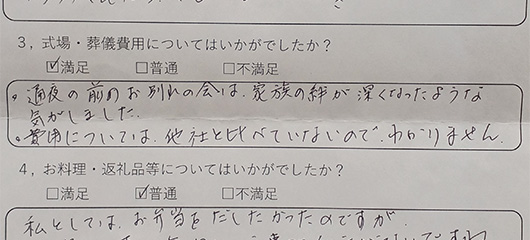 3，式場・葬儀費用についてはいかがでしたか？
☑満足 □普通 □不満足
・通夜の前のお別れの会は、家族の絆が深くなったような
気がしました。
・費用については、他社と比べていないので、わかりません。
4，お料理・返礼品等についてはいかがでしたか？
□満足 ☑普通 □不満足
私としては、お弁当をだしたかったのですが